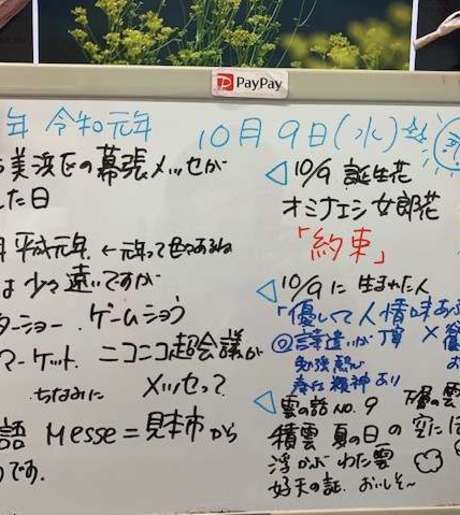 PayPay
年 令和元年 10月9日(水)
美浜区の幕張メッセが
した日
平成元年. ←元って色々あるね
は少々遠いですが
ターショー. ゲームショウ
マーケット. ニコニコ超会議が
ちなみに メッセって
語 Messe=見本市から
です.
◁ 10/9 誕生花
オミナエシ 女郎花
「約束」
◁ 10/9に生まれた人
「優しくて人情味あふ
◎言葉遣いが丁寧 ×
勉強熱心
奉仕精神あり
◁ 雲の話 NO.9 下層の雲
積雲 夏の日の空に
浮かぶ わた雲
好天の証. おいしそ~